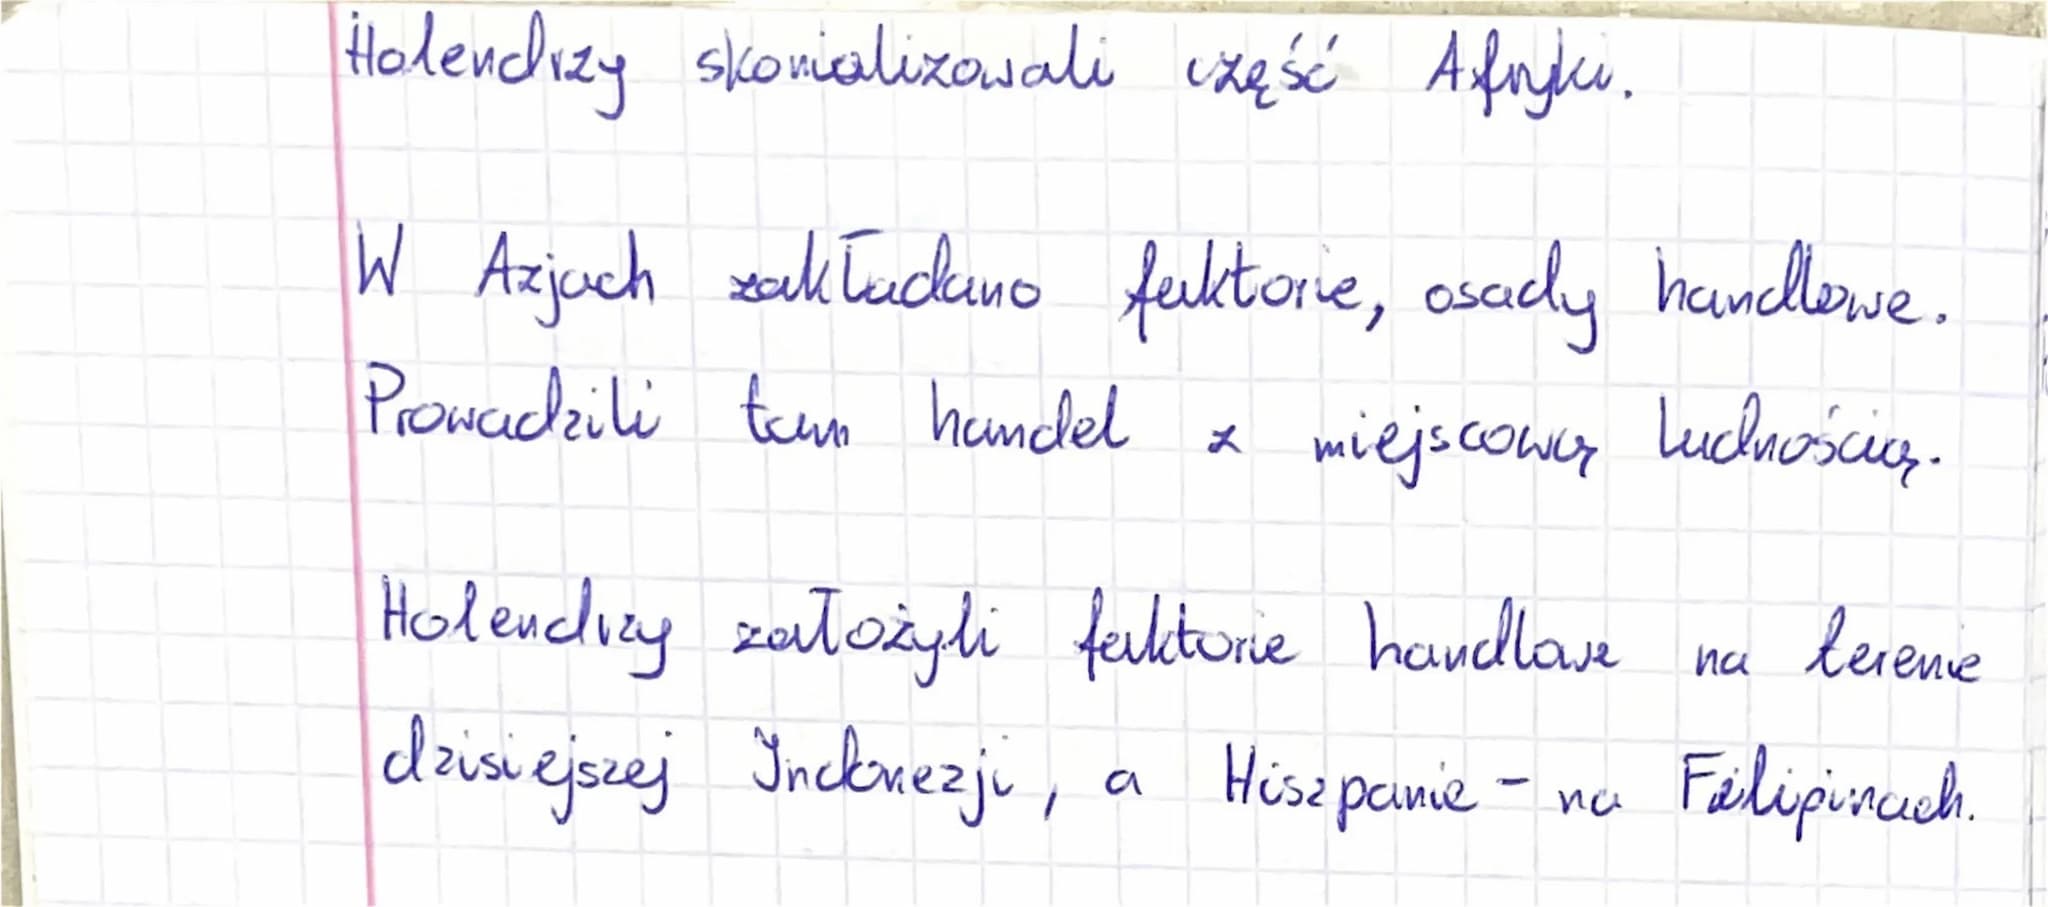 Holendrzy skonializowali część Afryki.
W Azjach zakładano faktorie, osady handlowe.
Prowadzili tam handel z miejscową ludnością.
Holendrzy założyli faktorie handlowe na terenie
dzisiejszej Indonezji, a Hiszpanie - na Filipinach.